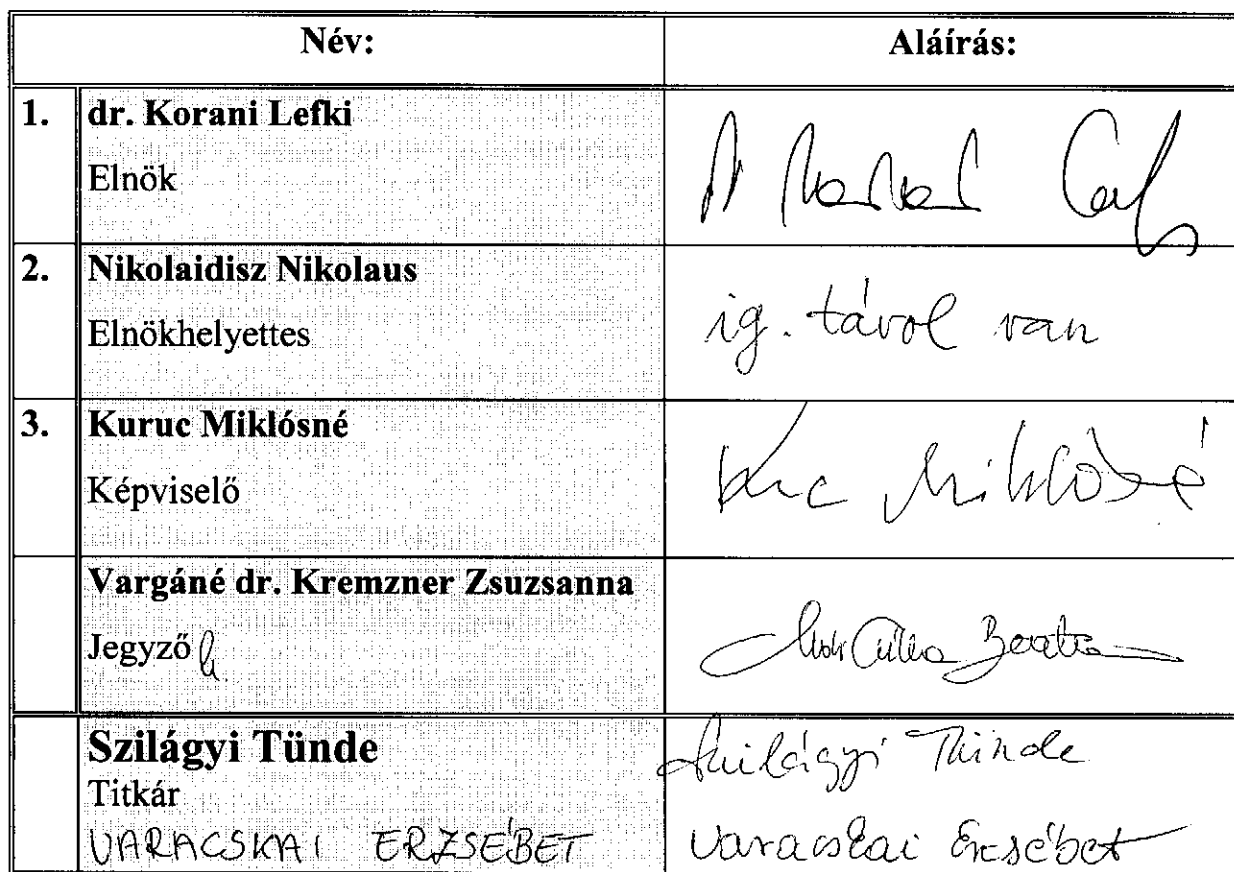 Név: Aláírás:
1. dr. Korani Lefki
Elnök
2. Nikolaidisz Nikolaus
Elnökhelyettes ig. távol van
3. Kuruc Miklósné
Képviselő Miklósné
Vargáné dr. Kremzner Zsuzsanna
Jegyző h.
Szilágyi Tünde Szilágyi Tünde
Titkár
VARACSKAI ERZSÉBET Varacskai Erzsébet